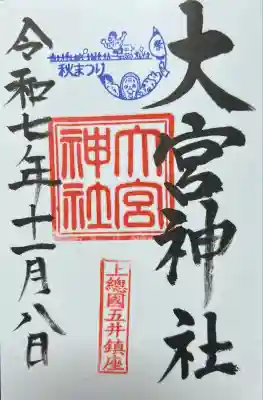 大宮神社
祭
秋まつり
大宮神社
上總國五井鎮座
令和七年十一月八日